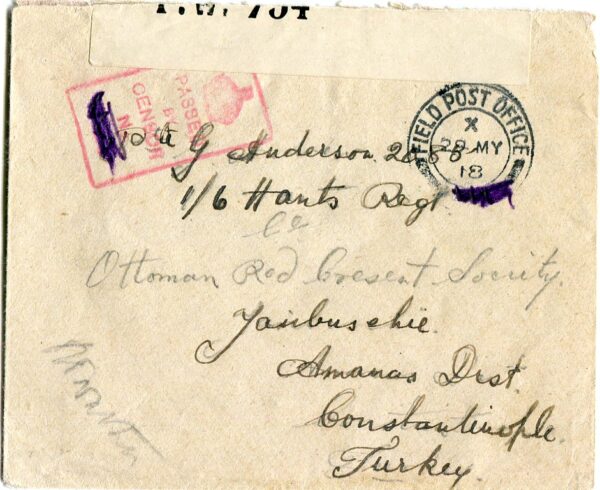 P.W. 734
PASSED
BY
CENSOR
No
FIELD POST OFFICE
X
28 MY
18
Pte G Anderson
1/6 Hants Regt
C/o
Ottoman Red Cresent Society.
Yaribuschie.
Amanas Dist.
Constantinople.
Turkey.